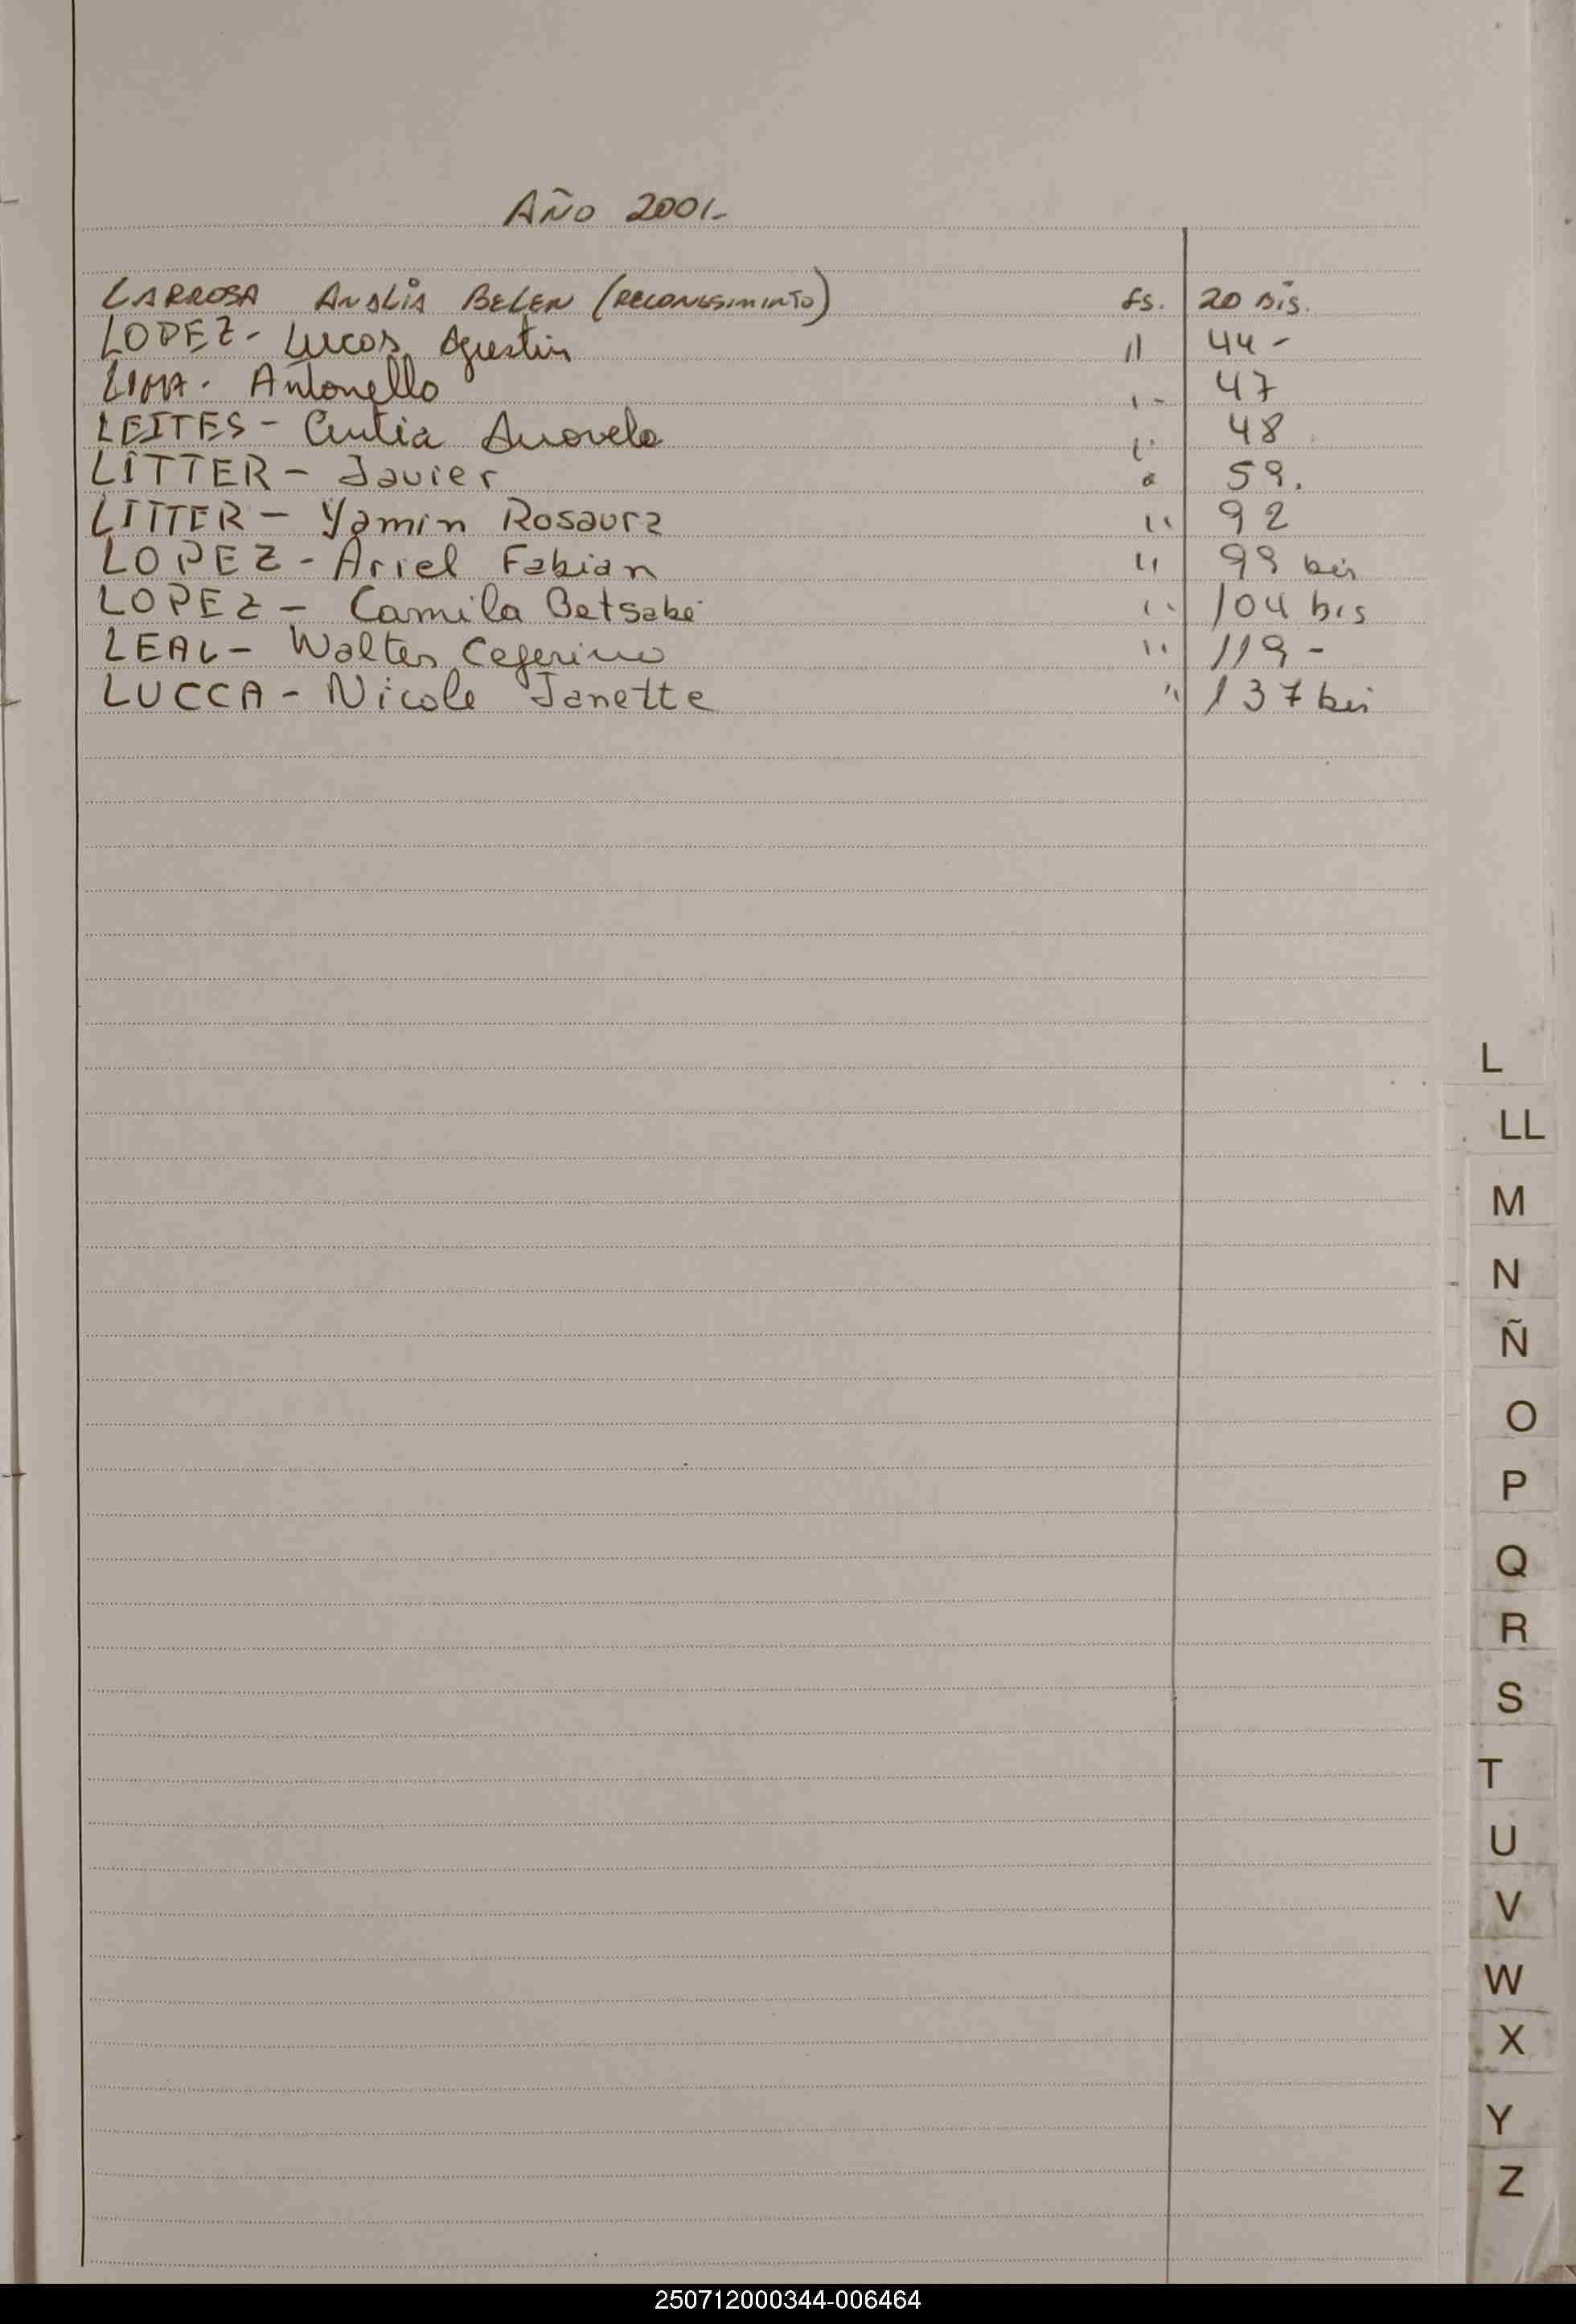 AÑO 2001-
LARROSA ANALIA BELEN (RECONOSIMINTO) fs. 20 Bis.
LOPEZ - Lucas Agustin " 44 -
LIMA - Antonella " 47
LEITES - Cintia " 48
LITTER - Javier " 59.
LITTER - Yamin Rosaura " 92
LOPEZ - Ariel Fabian " 99 bis
LOPEZ - Camila Betsabé " 104 bis
LEAL - Walter Ceferino " 119 -
LUCCA - Nicole Janette " 137 bis
L
LL
M
N
Ñ
O
P
Q
R
S
T
U
V
W
X
Y
Z
250712000344-006464